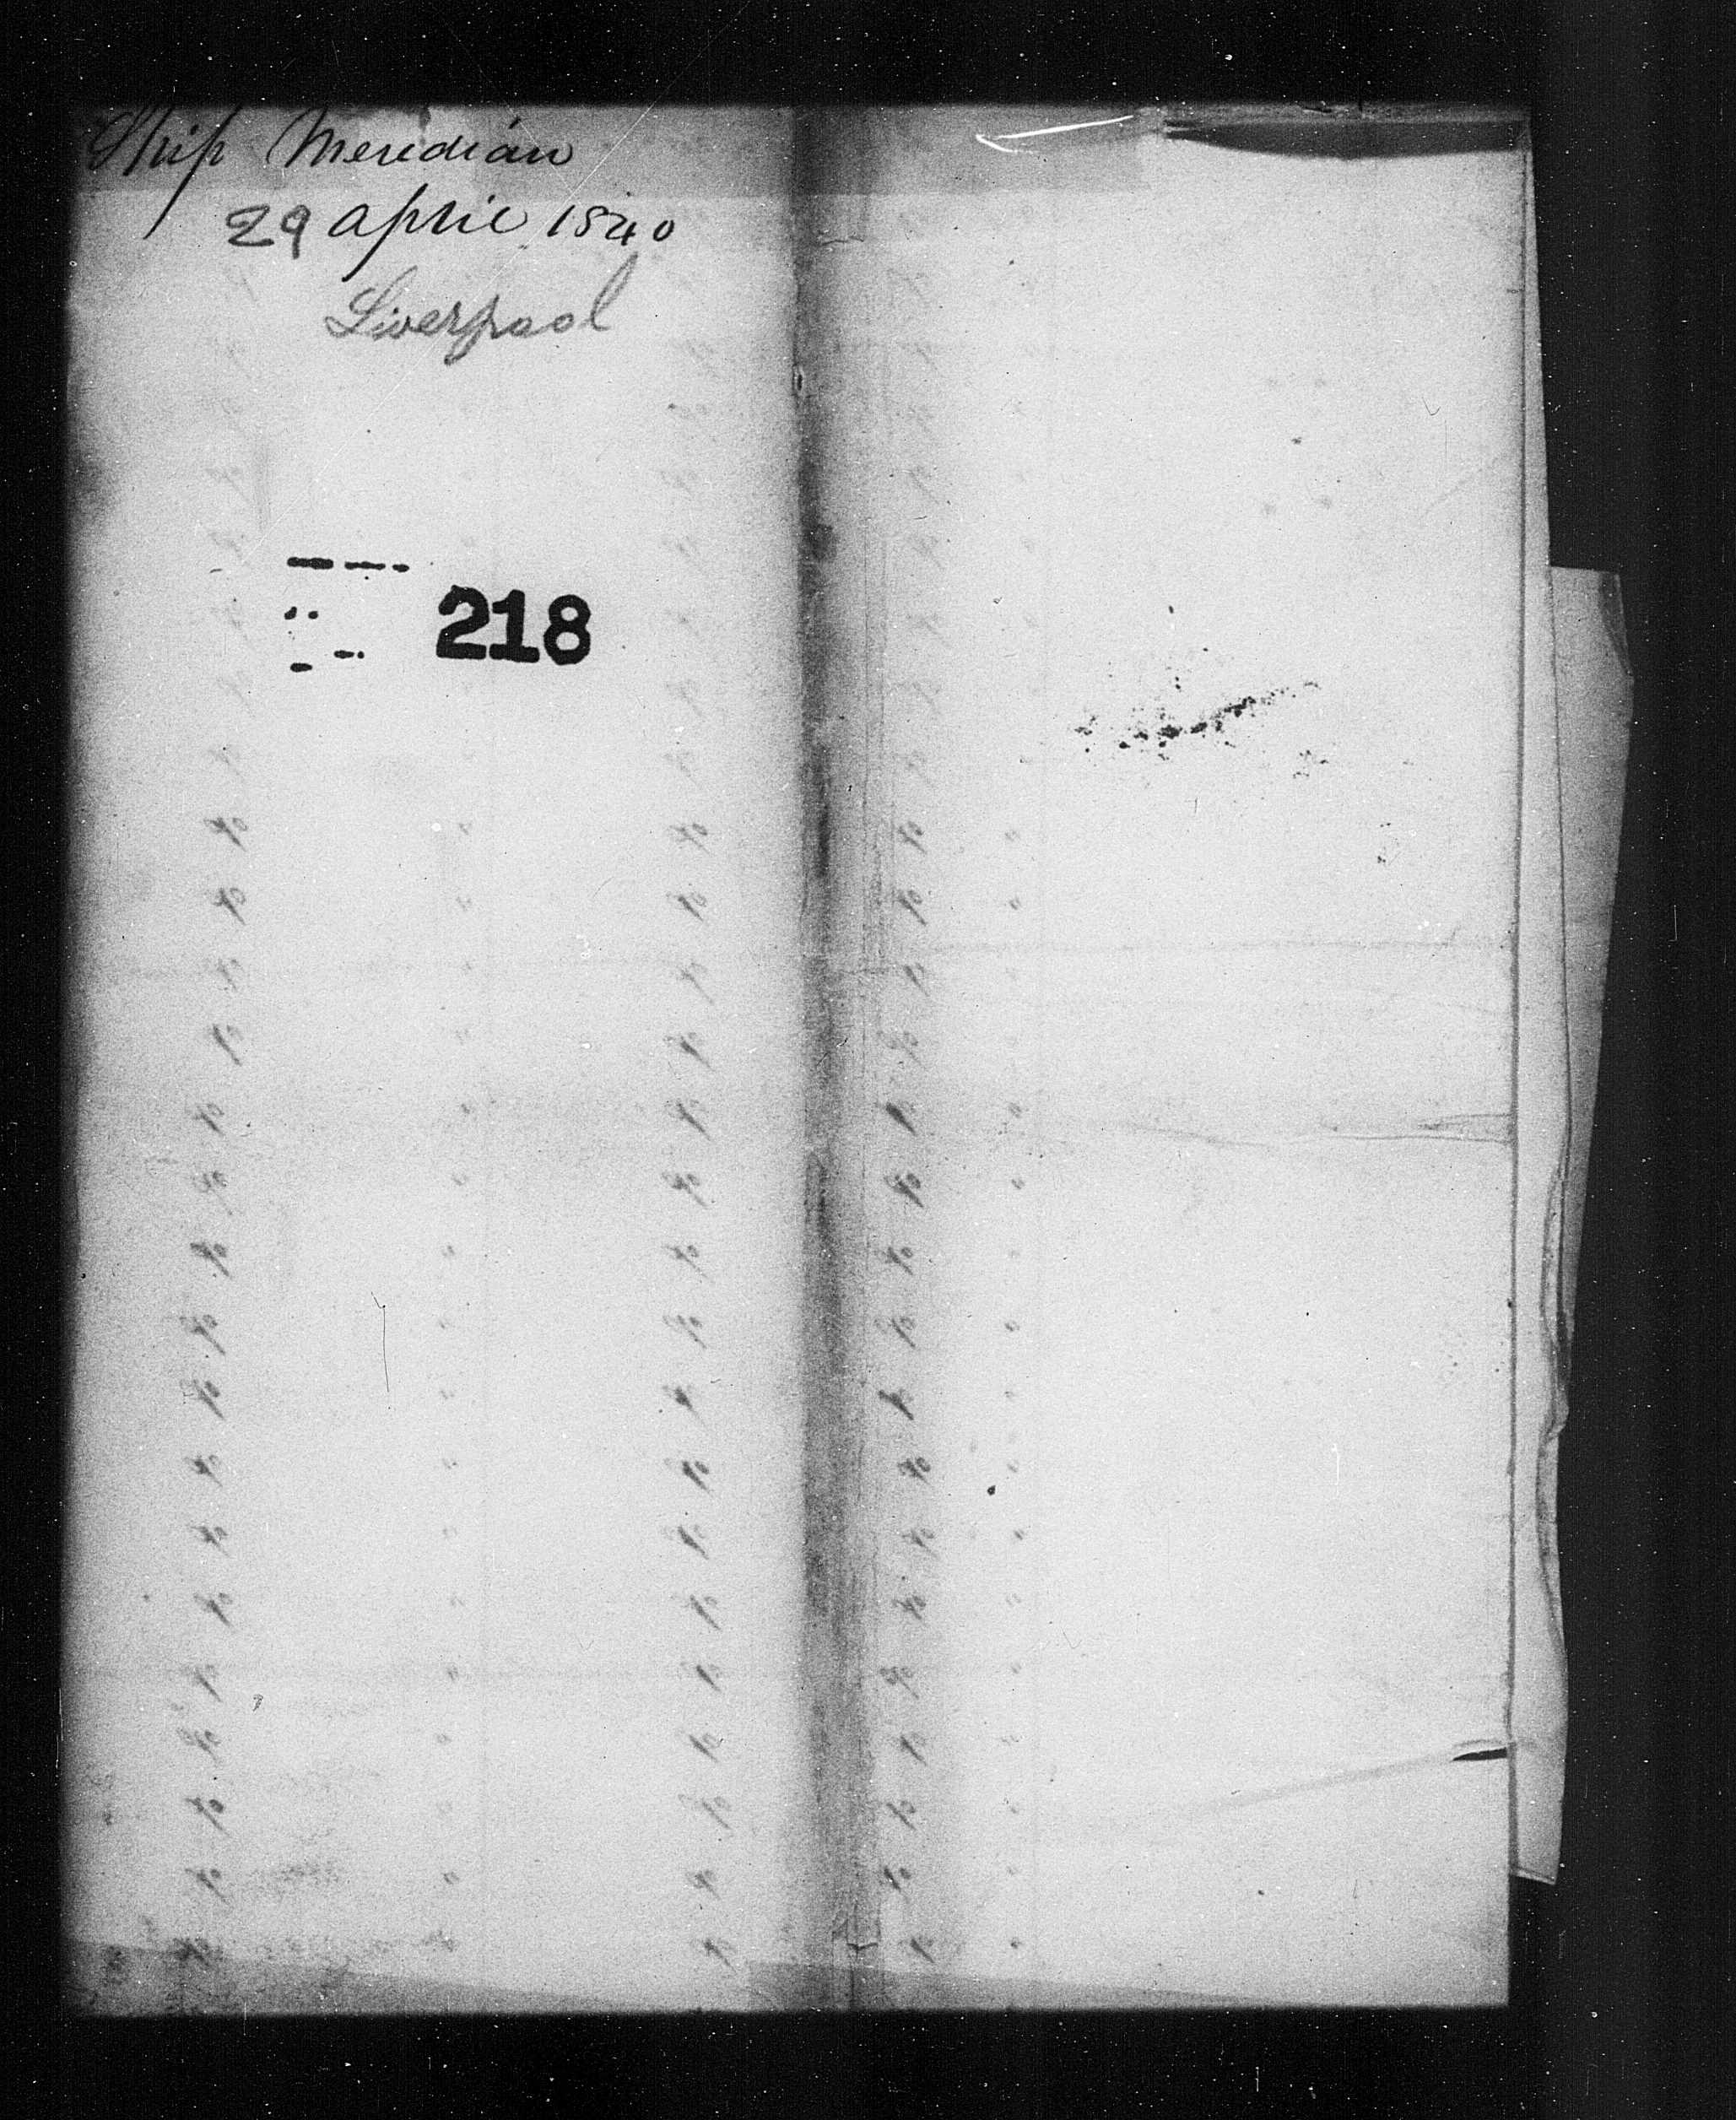 Ship Meridian
29 April 1840
Liverpool
218